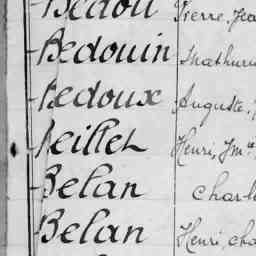 Bedou Pierre, Jea
Bedouin Mathuri
Bedoux Auguste,
Beillet Henri, Jm
Belan Charl
Belan Henri, cha